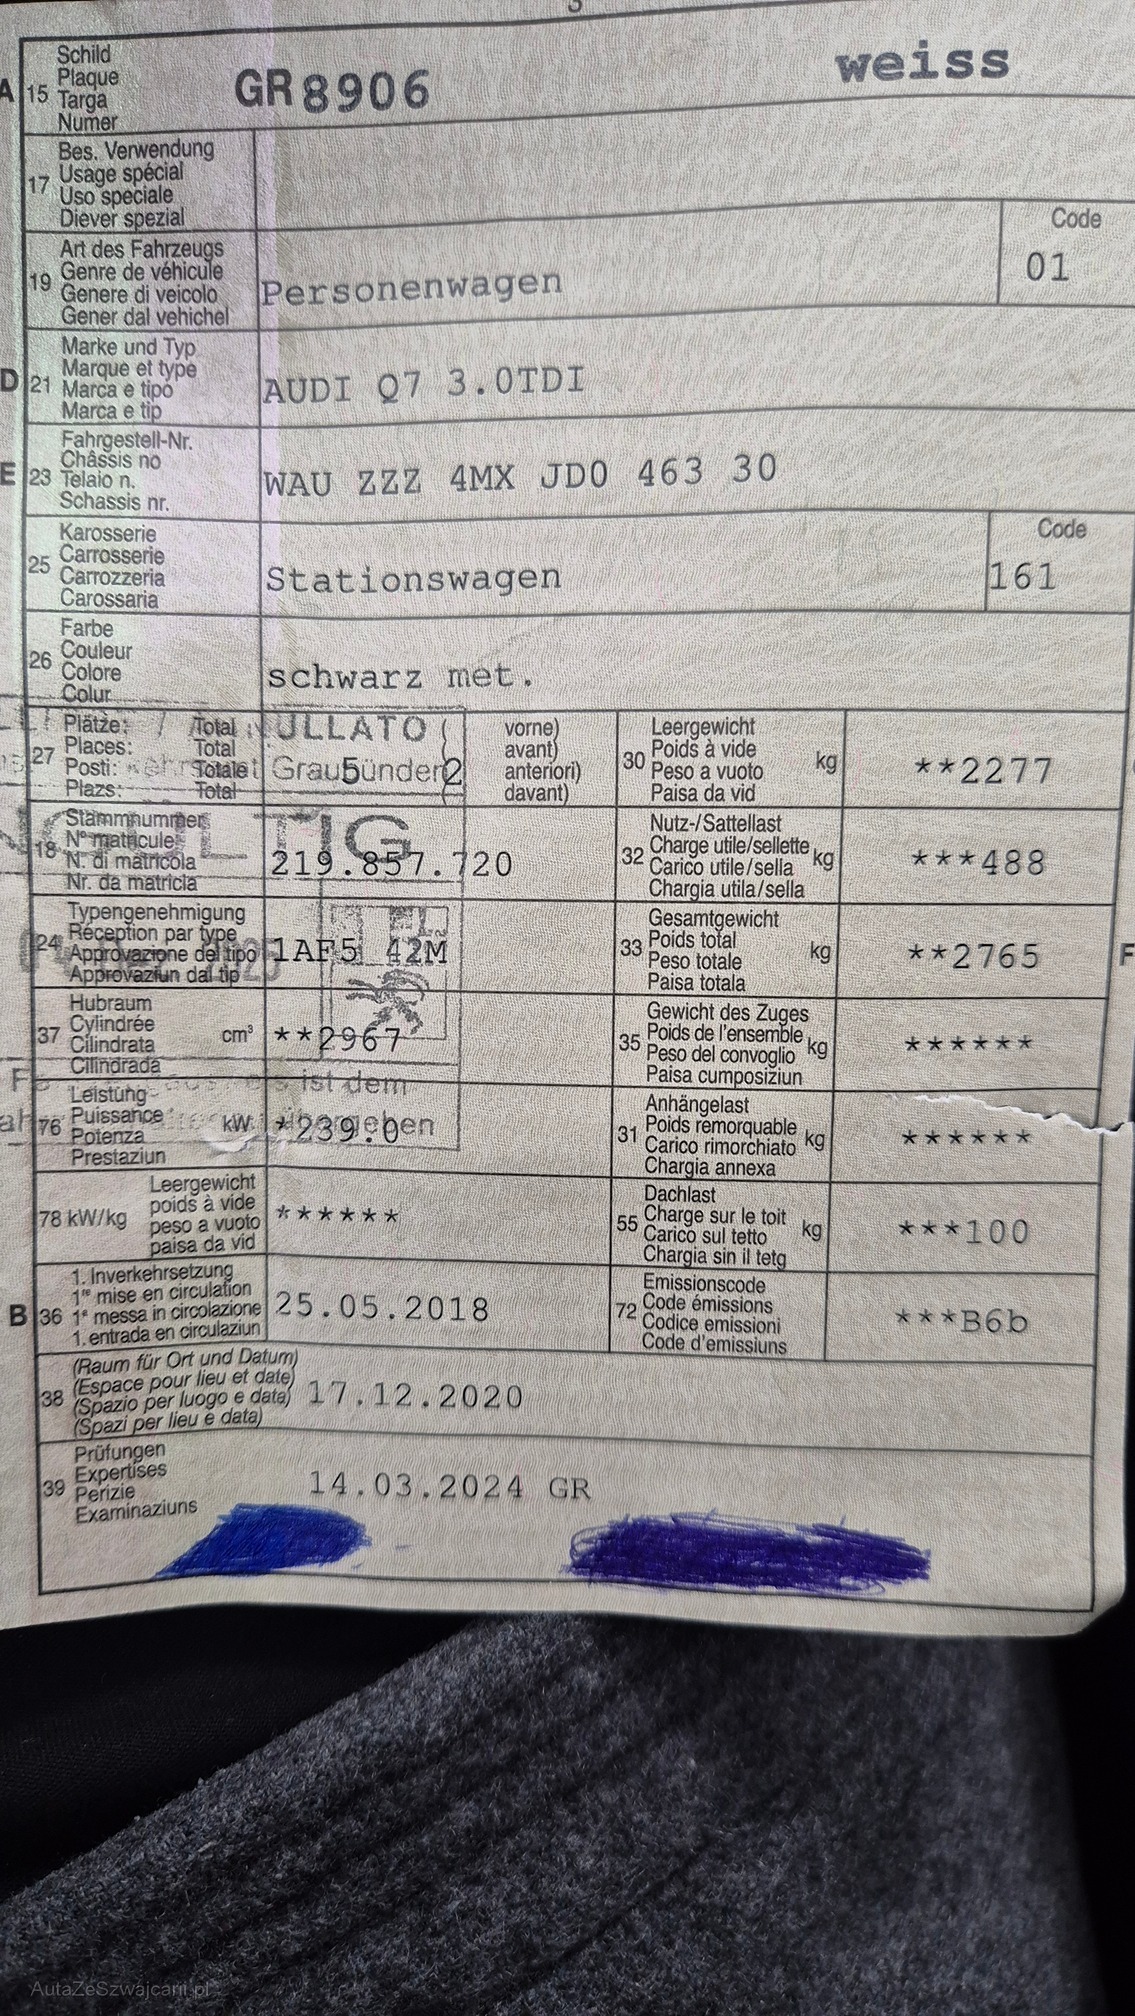 A 15 Schild Plaque Targa Numer GR 8906 weiss
17 Bes. Verwendung
Usage spécial
Uso speciale
Diever spezial
19 Art des Fahrzeugs
Genre de véhicule
Genere di veicolo
Gener dal vehichel
Personenwagen
Code
01
D 21 Marke und Typ
Marque et type
Marca e tipo
Marca e tip
AUDI Q7 3.0TDI
E 23 Fahrgestell-Nr.
Châssis no
Telaio n.
Schassis nr.
WAU ZZZ 4MX JD0 463 30
25 Karosserie
Carrosserie
Carrozzeria
Carossaria
Stationswagen
Code
161
26 Farbe
Couleur
Colore
Colur
schwarz met.
27 Plätze: Total
Places: Total
Posti: Totale
Plazs: Total
5 (2
vorne)
avant)
anteriori)
davant)
30 Leergewicht
Poids à vide
Peso a vuoto
Paisa da vid
kg
**2277
18 Stammnummer
N° matricule
N. di matricola
Nr. da matricla
219.857.720
32 Nutz-/Sattellast
Charge utile/sellette
Carico utile/sella
Chargia utila/sella
kg
***488
24 Typengenehmigung
Réception par type
Approvazione del tipo
Approvaziun dal tip
1AF5 42M
33 Gesamtgewicht
Poids total
Peso totale
Paisa totala
kg
**2765
F
37 Hubraum
Cylindrée
Cilindrata
Cilindrada
cm³
**2967
35 Gewicht des Zuges
Poids de l'ensemble
Peso del convoglio
Paisa cumposiziun
kg
******
76 Leistung
Puissance
Potenza
Prestaziun
kW
*239.0
31 Anhängelast
Poids remorquable
Carico rimorchiato
Chargia annexa
kg
******
78 kW/kg Leergewicht
poids à vide
peso a vuoto
paisa da vid
******
55 Dachlast
Charge sur le toit
Carico sul tetto
Chargia sin il tetg
kg
***100
B 36 1. Inverkehrsetzung
1re mise en circulation
1a messa in circolazione
1. entrada en circulaziun
25.05.2018
72 Emissionscode
Code émissions
Codice emissioni
Code d'emissiuns
***B6b
38 (Raum für Ort und Datum)
(Espace pour lieu et date)
(Spazio per luogo e data)
(Spazi per lieu e data)
17.12.2020
39 Prüfungen
Expertises
Perizie
Examinaziuns
14.03.2024 GR
ist dem
übergeben
AutaZeSzwajcarii.pl